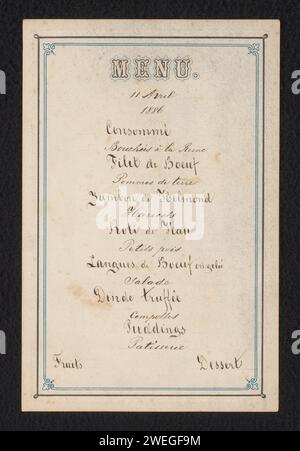 MENU.
11 Avril
1886
Consommé
Bouchées à la Reine
Filet de Boeuf
Pommes de terre
Jambon de Helmond
Haricots
Roti de Veau
Petits pois
Langues de Boeuf en gelée
Salade
Dinde truffée
Compottes
Puddings
Patisserie
Fruits Dessert
alamy
Image ID: 2WEGF9M
www.alamy.com